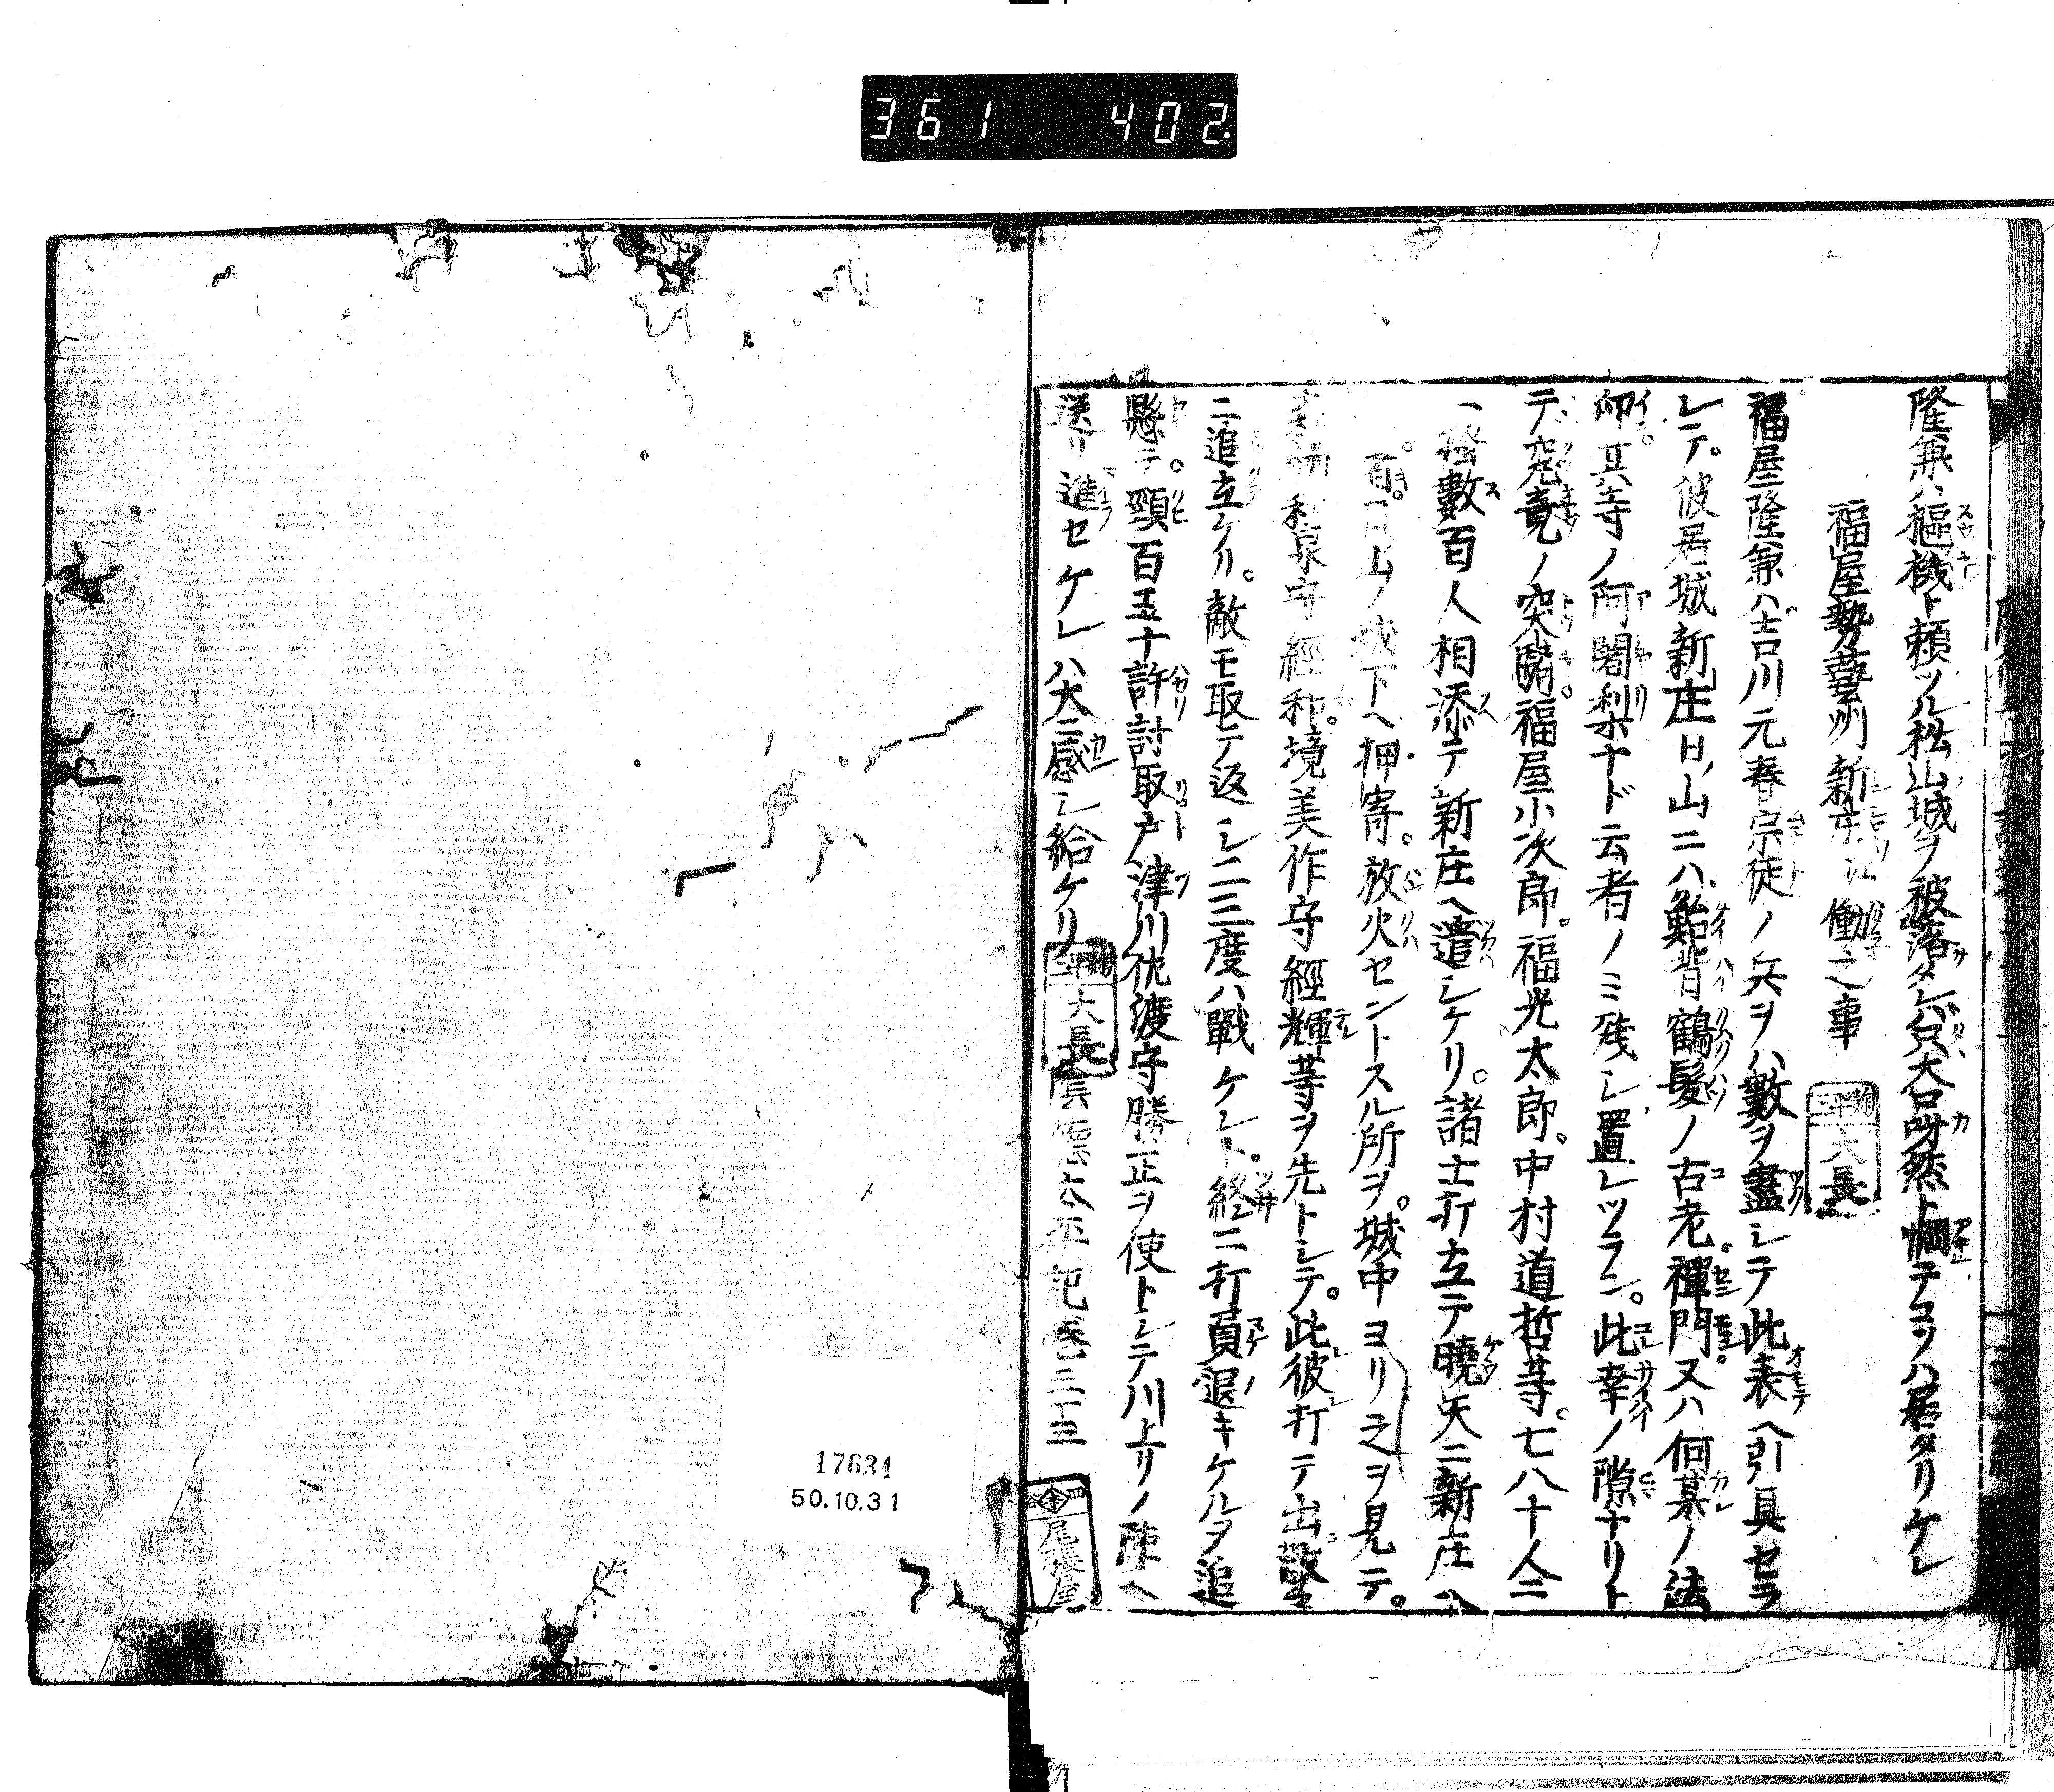 361 402
隆兼ハ樞機ト頼ツル松山城ヲ被落タレバ只大口呀然ト惘テコソハ居タリケレ
福屋勢藝州新庄江働之事
大長
福屋隆兼ハ吉川元春宗徒ノ兵ヲハ數ヲ盡シテ此表ヘ引具セラ
レテ。彼居城新庄日ノ山ニハ鮐背鶴髮ノ古老。禪門。又ハ何某ノ法
印其寺ノ阿闍梨ナド云者ノミ残シ置レツラン。此幸ノ隙ナリト
テ究竟ノ突騎。福屋小次郎。福光太郎。中村道哲等。七八十人ニ
一揆數百人相添テ新庄ヘ遣シケリ。諸士打立テ曉天ニ新庄ヘ
日ノ山ノ城下ヘ押寄。放火セントスル所ヲ。城中ヨリ之ヲ見テ。
和泉守經 境美作守經輝等ヲ先トシテ。此彼打テ出散々
ニ追立ケリ。敵モ取テ返シ二三度ハ戰ケレト。終ニ打負退キケルヲ追
懸テ。頸百五十許討取戸津川佐渡守勝正ヲ使トシテ川上リノ陣ヘ
送リ進セケレハ大ニ感シ給ケリ
大長
陰德太平記巻三十三
尾張屋
17634
50.10.31